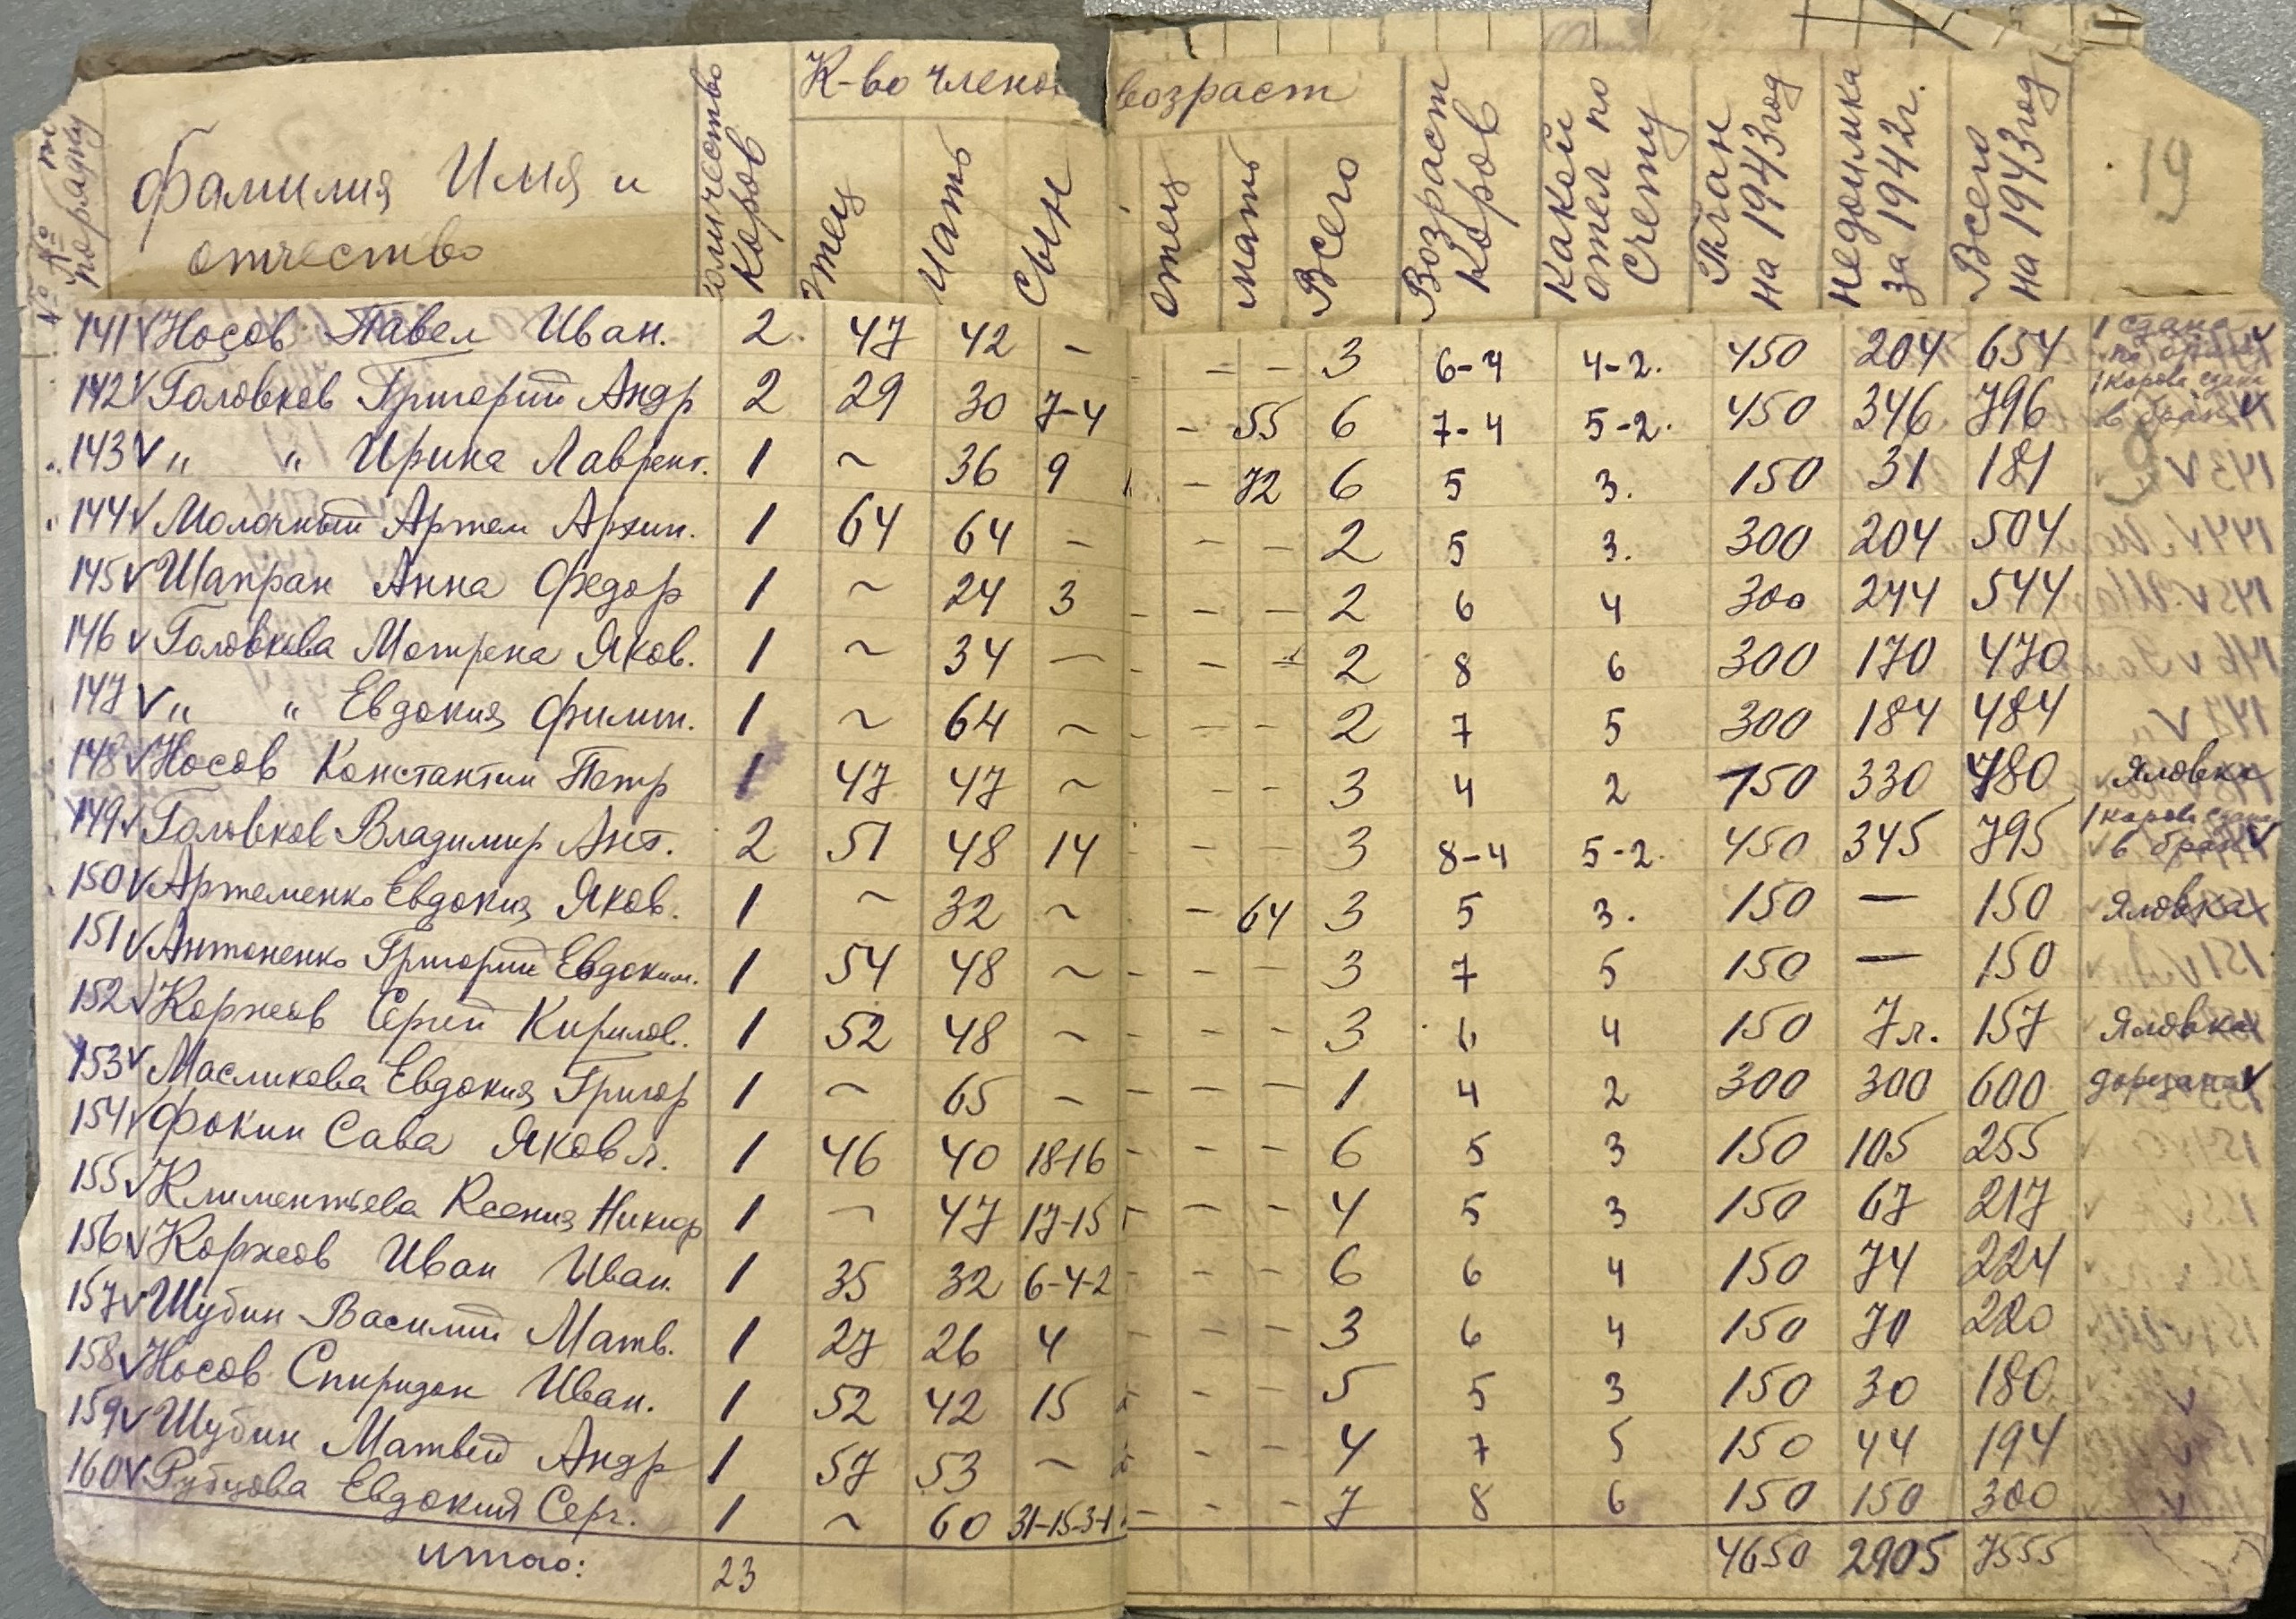 № № п порядку Фамилия Имя и отчество количество Коров К-во члено возраст
Отец Мать Сын отец мать Всего Возраст Коров Какой отел по Счету План на 1943 год недоимка за 1942 г. Всего на 1943 год 19
141 v Носов Павел Иван. 2 47 42 - - - 3 6-4 4-2. 450 204 654 1 сдана v
142 v Головков Григорий Андр 2 29 30 7-4 - 55 6 7-4 5-2. 450 346 796 1 корова сдана в брак v
143 v " " Ирина Лаврент. 1 ~ 36 9 - 72 6 5 3. 150 31 181
144 v Молочный Артем Архип. 1 64 64 - - - 2 5 3. 300 204 504
145 v Шапран Анна Федор 1 ~ 24 3 - - - 2 6 4 300 244 544
146 v Головкова Мотрена Яков. 1 ~ 34 - - - 2 8 6 300 170 470
147 v " " Евдокия Филип. 1 ~ 64 ~ - - - 2 7 5 300 184 484
148 v Носов Константин Петр 1 47 47 ~ - - 3 4 2 150 330 780 Яловка
149 v Головков Владимир Ант. 2 51 48 14 - - - 3 8-4 5-2. 450 345 795 1 корова сдана в брак v
150 v Артеменко Евдокия Яков. 1 ~ 32 ~ - 64 3 5 3. 150 — 150 Яловка
151 v Антоненко Григорий Евдоким. 1 54 48 ~ - - - - 3 7 5 150 — 150
152 v Коржов Сергей Кирилов. 1 52 48 ~ - - - - 3 6 4 150 7 л. 157 Яловка
153 v Масликова Евдокия Григор 1 ~ 65 - - - - - 1 4 2 300 300 600 v
154 v Фокин Сава Яковл. 1 46 40 18-16 - - - - 6 5 3 150 105 255
155 v Климентьева Ксения Никиф 1 ~ 47 17-15 - - - 4 5 3 150 67 217
156 v Коржов Иван Иван. 1 35 32 6-4-2 - - - - 6 6 4 150 74 224
157 v Шубин Василий Матв. 1 27 26 4 - - - - 3 6 4 150 70 220
158 v Носов Спиридон Иван. 1 52 42 15 - - - 5 5 3 150 30 180 v
159 v Шубин Матвей Андр 1 57 53 ~ - - - 4 7 5 150 44 194 v
160 v Рубцова Евдокия Серг. 1 ~ 60 31-15-3-1 - - - - 7 8 6 150 150 300 v
итого: 23 4650 2905 7555